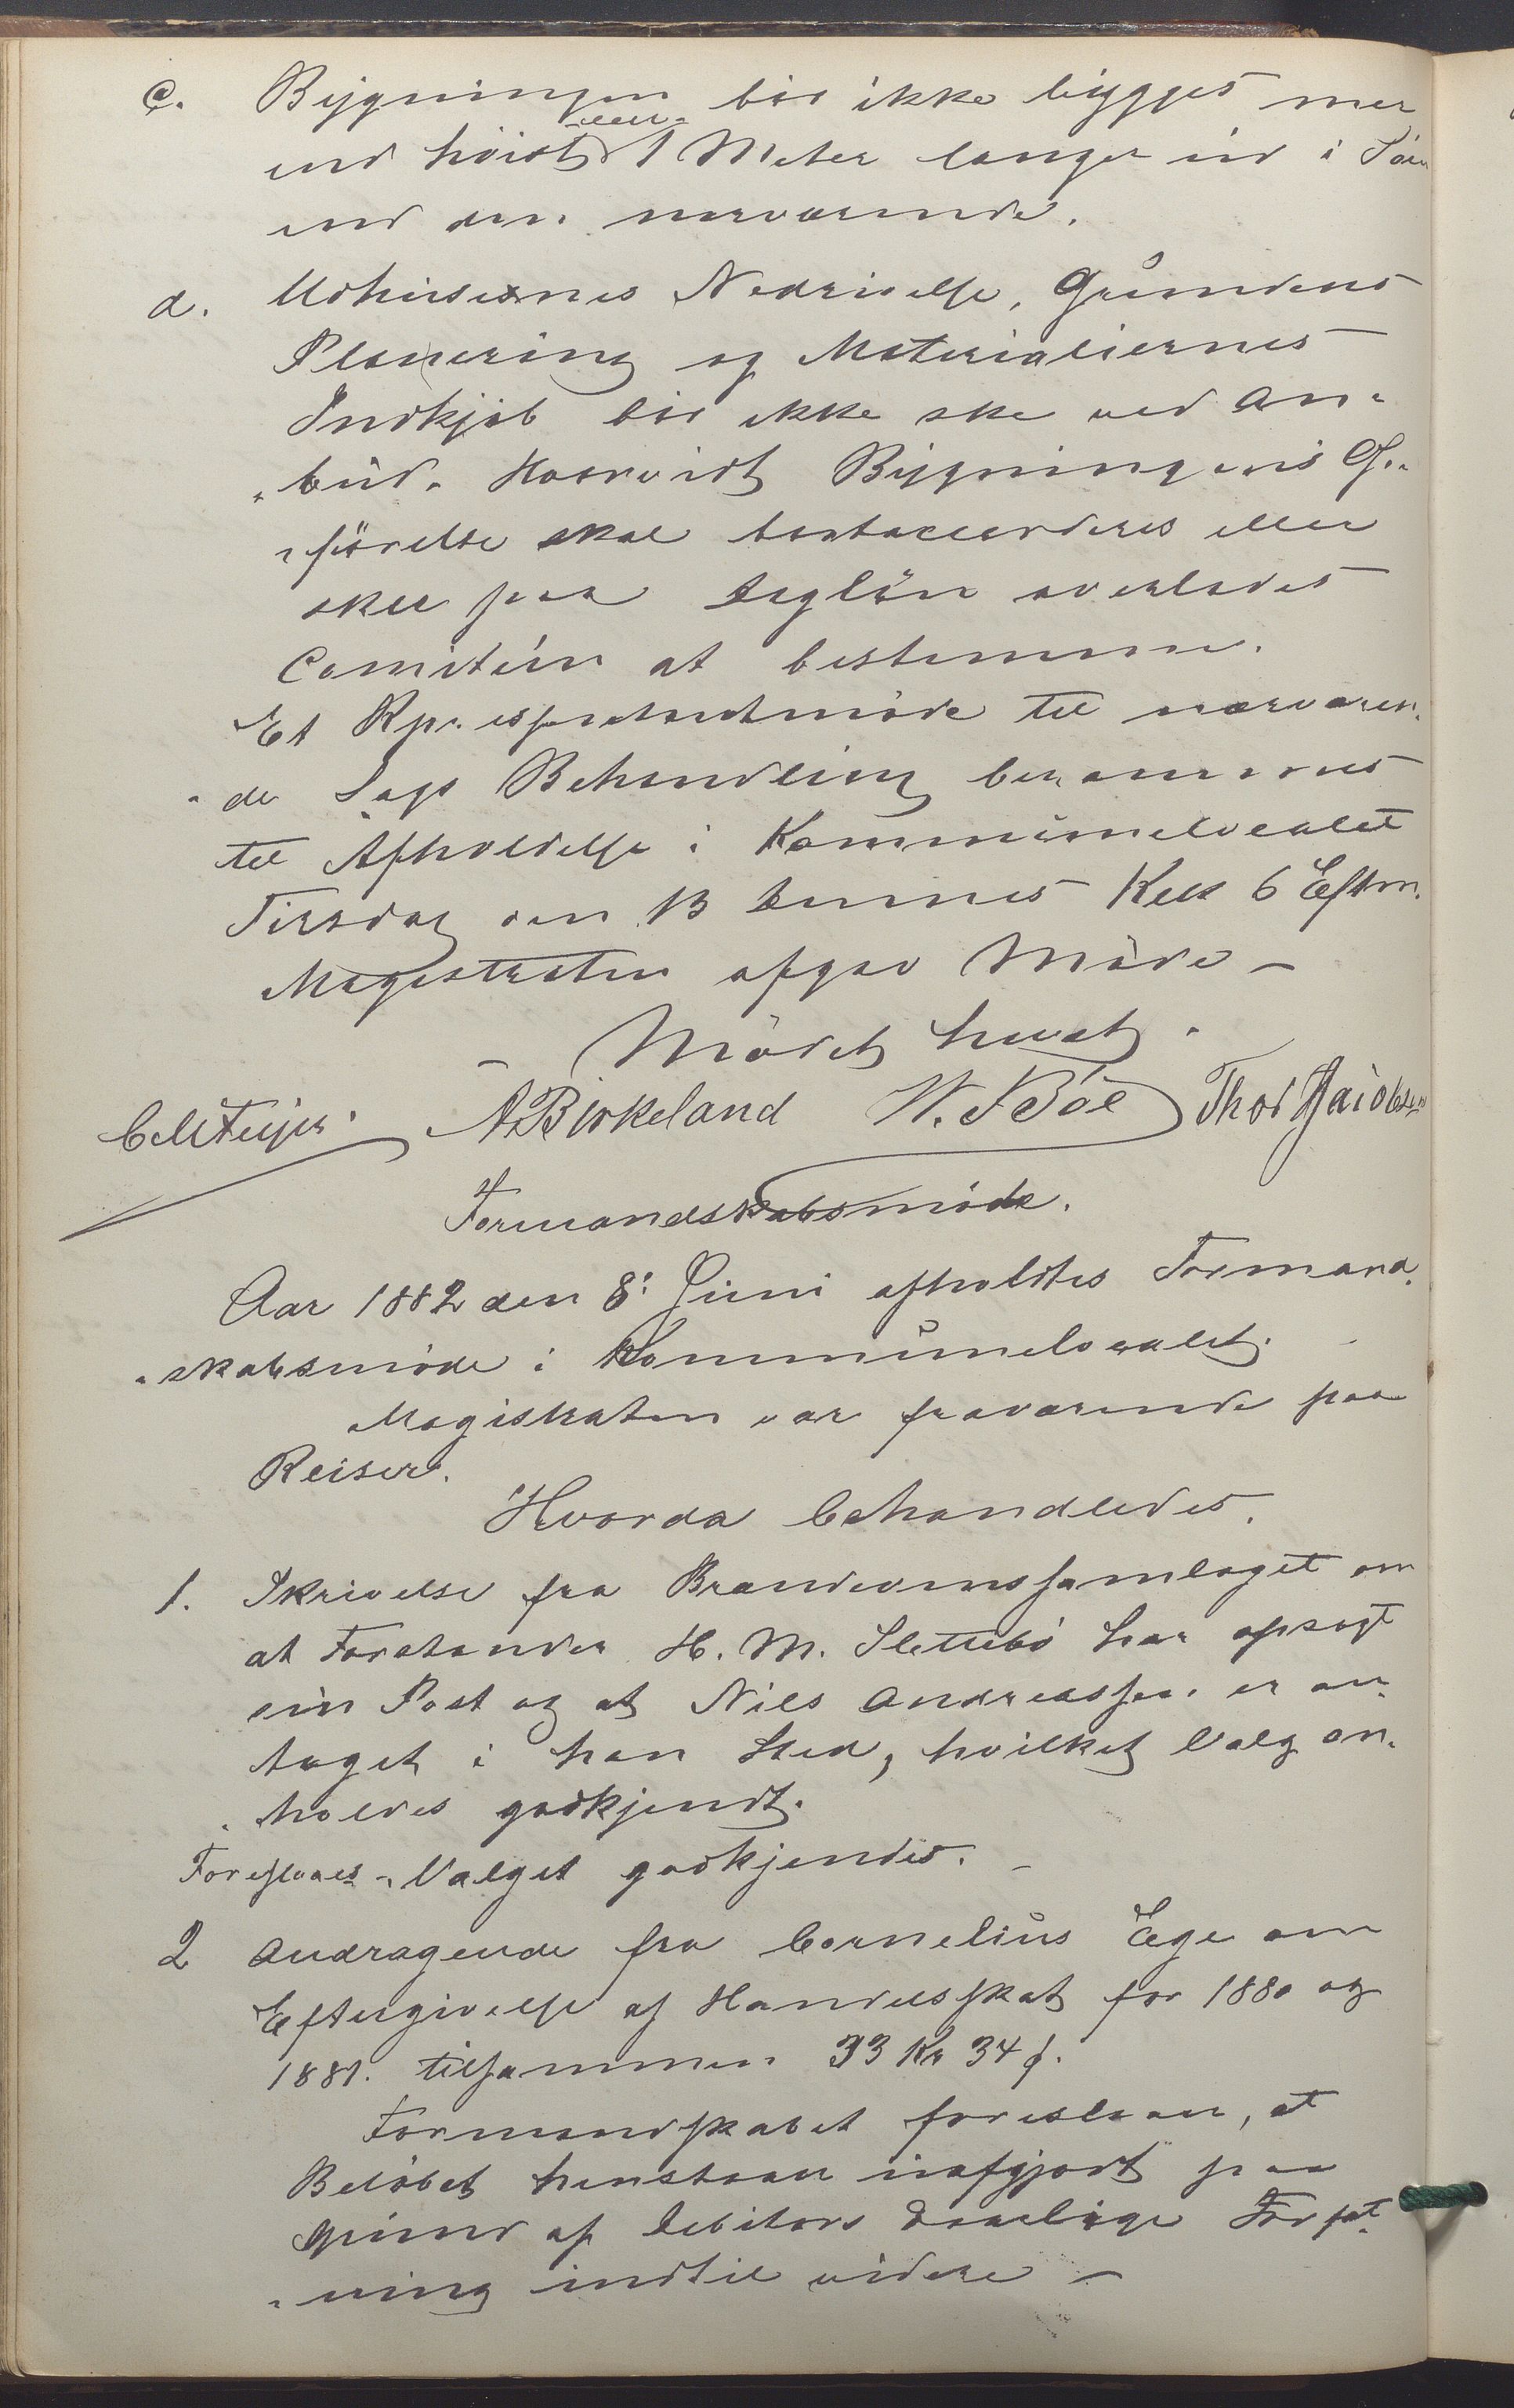 c. Bygningen bör ikke bygges mer
end höist 1 Meter længer ud i Söen
end den nerværende.
d. Udhusenes Nedrivelse, Grundens
Planering og Materialiernes
Indkjöb bör ikke ske ved An-
„bud. Hvorvidt Bygningens Op-
„förelse skal bortaccorderes eller
skee paa Daglön overlades
Comitéen at bestemme.
Et Repræsentantmöde til nærværen-
„de Sags Behandling berammes
til Afholdelse i Kommunelocalet
Tirsdag den 13 dennes Kell 6 Eftm.
Magistraten afgav Möde –
– Mödet hævet.
A Birkeland W. Böe Thor Jacobsen
Formandskabsmöde.
Aar 1882 den 8: Juni afholdtes Formand-
„skabsmöde i Kommunelocalet.
Magistraten var fraværende paa
Reiser.
Hvorda behandledes.
1. Skrivelse fra Brændevinssamlaget om
at Forstander H. M. Slettebö har opsagt
sin Post og at Nils Andreassen er an-
taget i han Sted, hvilket Valg an-
„holdes godkjendt.
Foreslaaes Valget godkjendes. –
2 Andragende fra Cornelius Ege om
Eftergivelse af Handelsskat for 1880 og
1881. tilsammen 33 Kr 34 ø.
Formandskabet foreslaar, at
Belöbet henstaar uafgjort paa
Grund af Debitors daarlige Forfat-
„ning indtil videre –